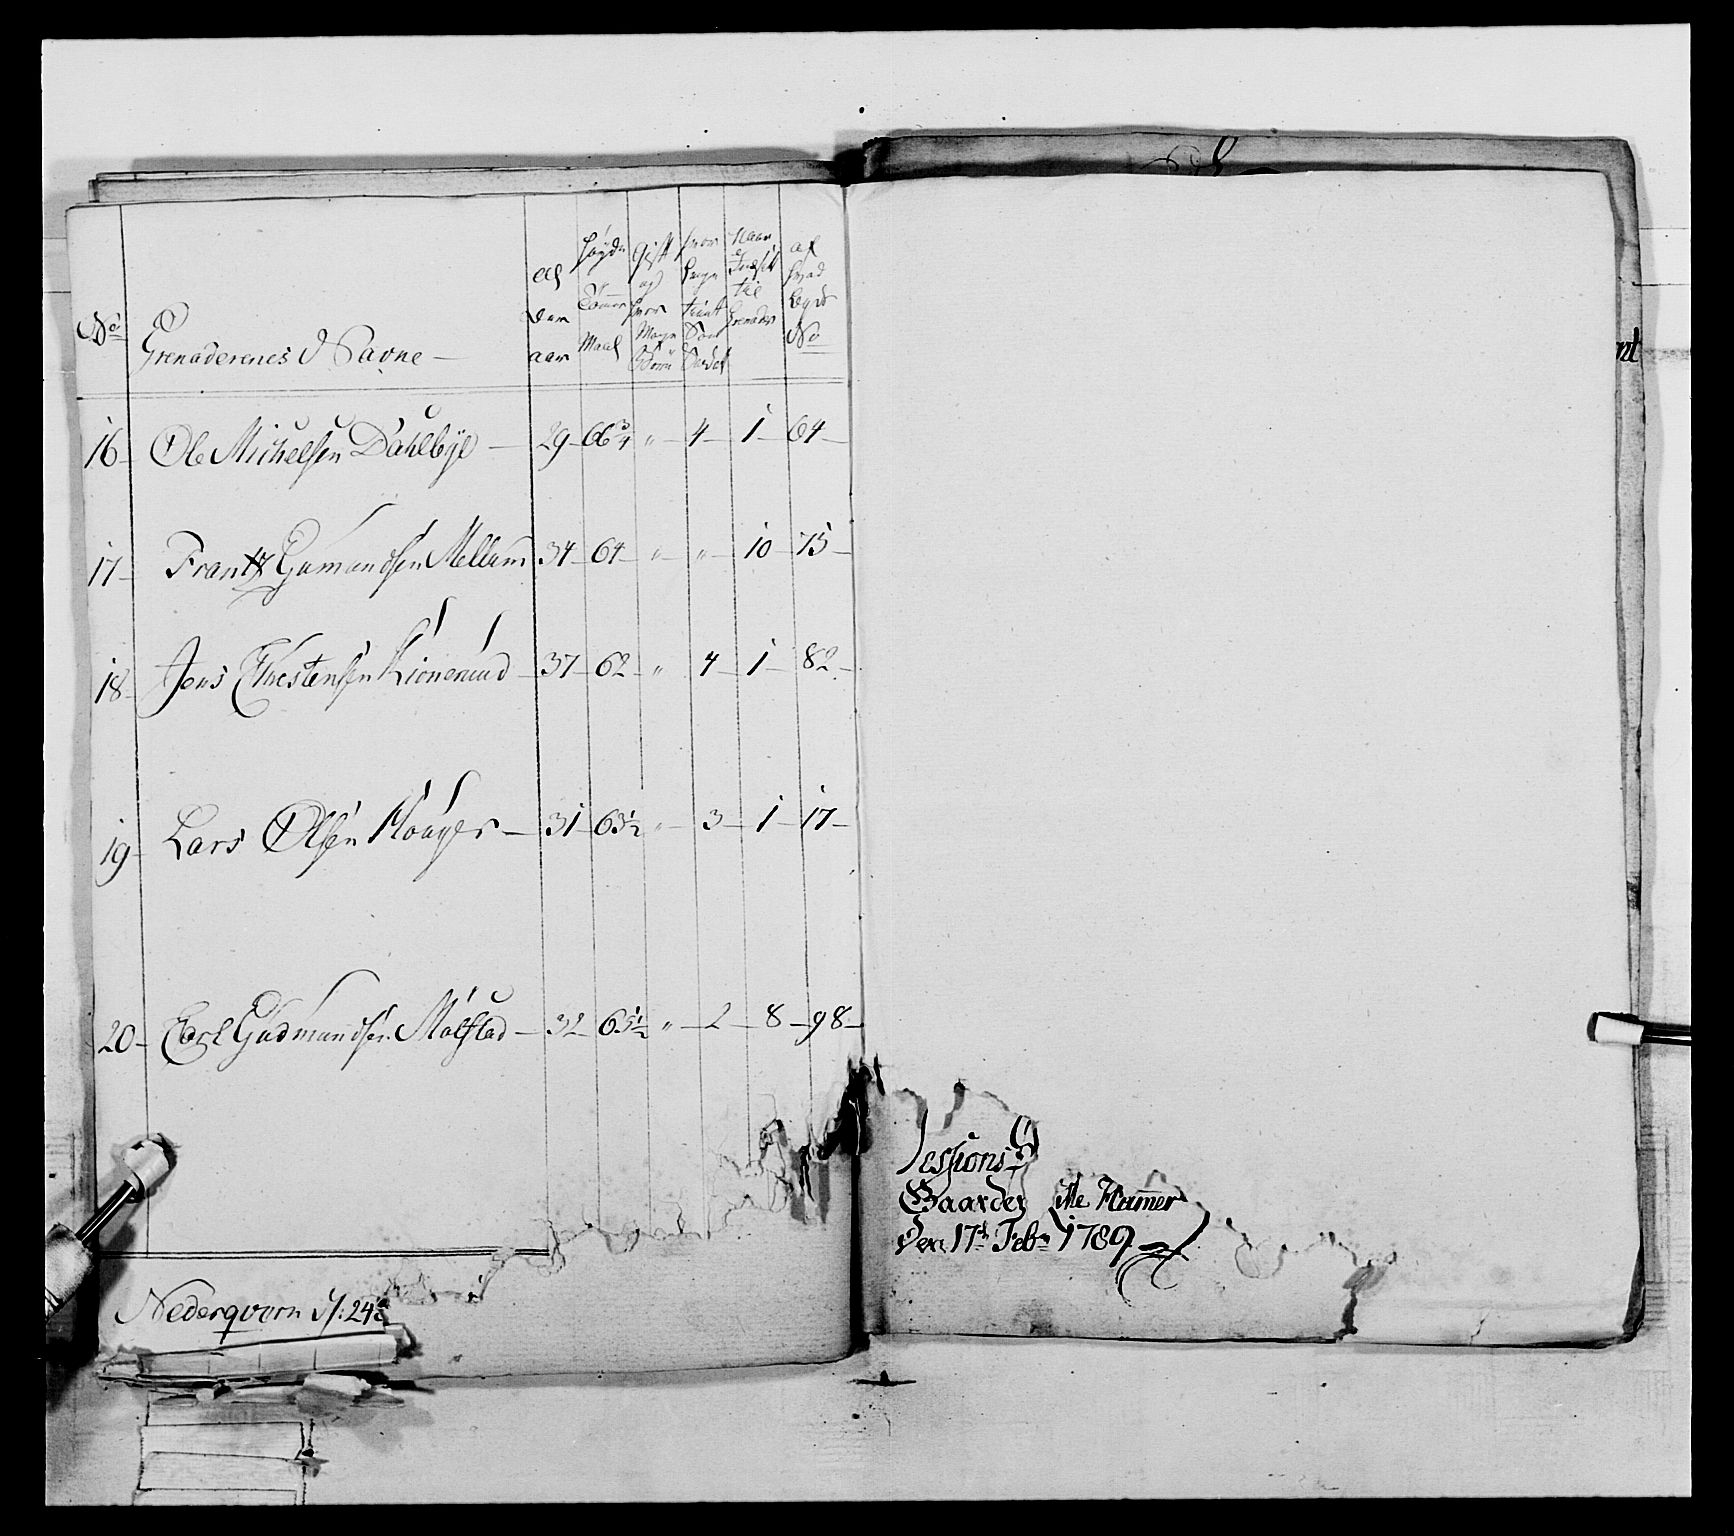 No Grenaderenes Navne — Al der aar Høyde Tomme Maal Gift og hvor Mange Børn hvor Lenge tient Som Soldat Naar Indsatt til Grenader af hvad Lægd No
16 — Ole Michelsen Dahlbye — 29 — 66 3/4 " — 4 — 1 — 64 —
17 — Frantz Gumandsen Mellum 34 — 64 — " — " — 10 — 75 —
18 — Jens Thostensen Kionerud — 37 — 62 — " 4 — 1 — 82 —
19 — Lars Olsen Houger — 31 — 63 1/2 " — 3 — 1 — 17 —
20 — Carl Gudmundsen Molstad — 32 — 65 1/2 " — 2 — 8 — 98 —
Nederqvern
Sessions
Gaarden Hamer
Den 17de Febr 1789